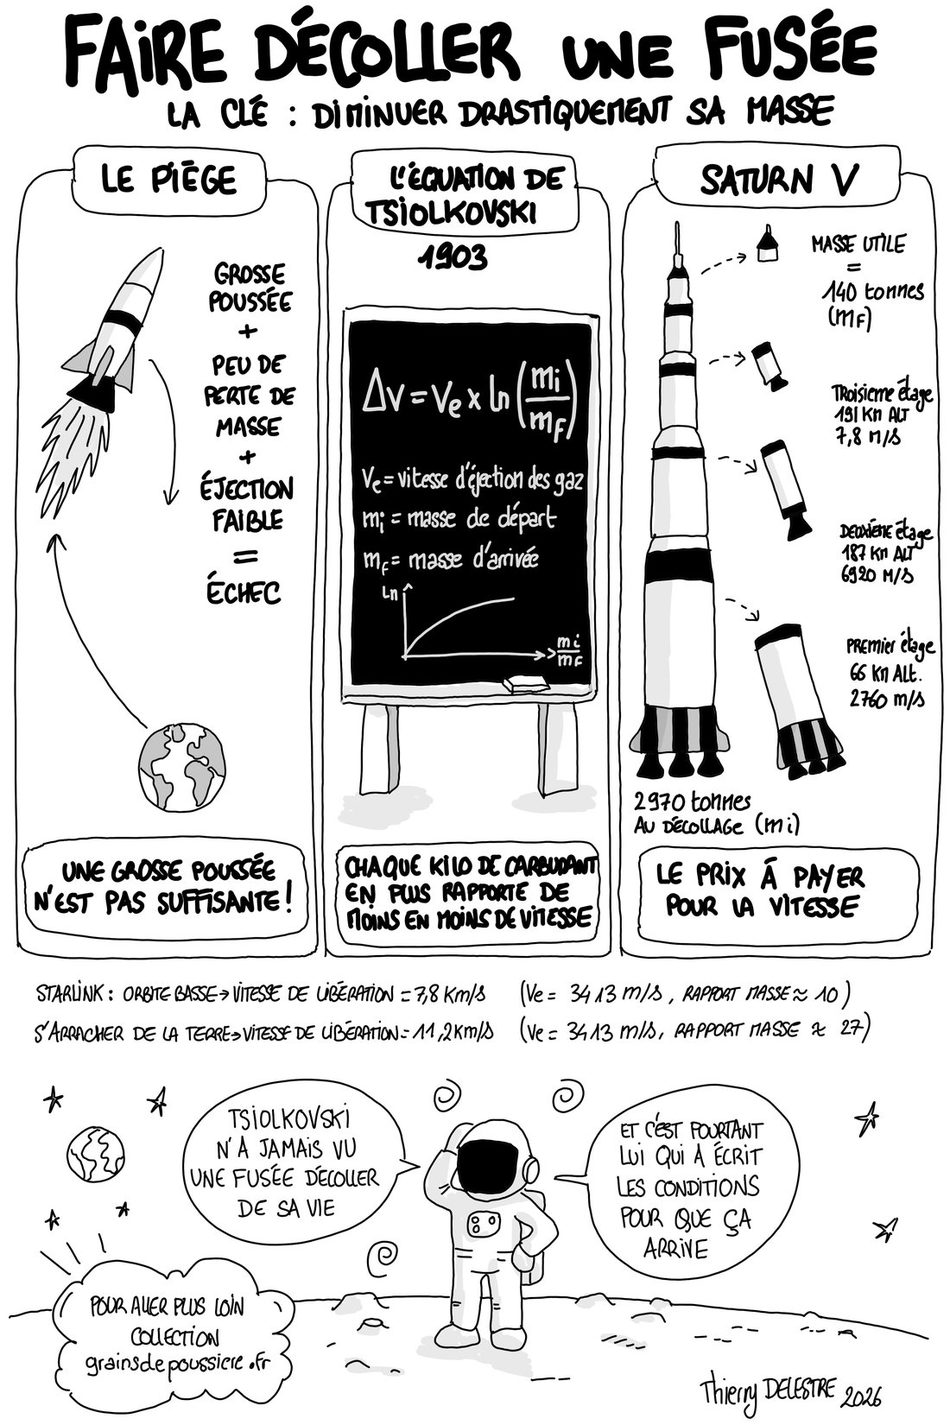 FAIRE DÉCOLLER UNE FUSÉE
LA CLÉ : DIMINUER DRASTIQUEMENT SA MASSE
LE PIÈGE
GROSSE
POUSSÉE
+
PEU DE
PERTE DE
MASSE
+
ÉJECTION
FAIBLE
=
ÉCHEC
UNE GROSSE POUSSÉE
N'EST PAS SUFFISANTE !
L'ÉQUATION DE
TSIOLKOVSKI
1903
Δv = Ve x ln (mi/mF)
Ve = vitesse d'éjection des gaz
mi = masse de départ
mF = masse d'arrivée
Ln
mi/mF
CHAQUE KILO DE CARBURANT
EN PLUS RAPPORTE DE
MOINS EN MOINS DE VITESSE
SATURN V
MASSE UTILE
=
140 tonnes
(mF)
TROISIEME étage
191 Km ALT
7,8 M/S
DEUXIÈME étage
187 Km ALT
6920 M/S
PREMIER étage
66 Km Alt.
2760 m/s
2970 tonnes
AU DÉCOLLAGE (mi)
LE PRIX À PAYER
POUR LA VITESSE
STARLINK : ORBITE BASSE → VITESSE DE LIBÉRATION = 7,8 Km/S (Ve = 3413 m/s, RAPPORT MASSE ≈ 10)
S'ARRACHER DE LA TERRE → VITESSE DE LIBÉRATION = 11,2 Km/S (Ve = 3413 m/s, RAPPORT MASSE ≈ 27)
TSIOLKOVSKI
N'A JAMAIS VU
UNE FUSÉE DÉCOLLER
DE SA VIE
ET C'EST POURTANT
LUI QUI A ÉCRIT
LES CONDITIONS
POUR QUE ÇA
ARRIVE
POUR ALLER PLUS LOIN
COLLECTION
grainsdepoussiere.fr
Thierry DELESTRE 2026